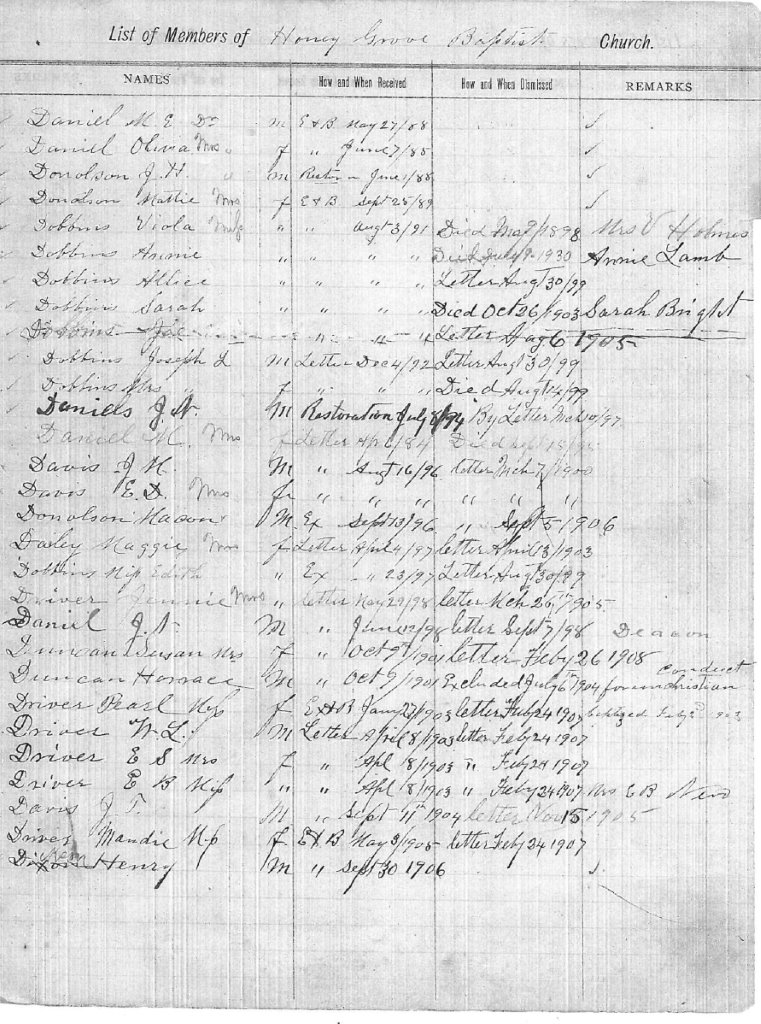 List of Members of Honey Grove Baptist Church.
NAMES How and When Received How and When Dismissed REMARKS
Daniel M E Dr M E & B May 27/08 ✓
Daniel Olivia Mrs f " June 7/85 ✓
Donolson J. H. M Resto June 1/88 ✓
Donolson Mattie Mrs f E & B Sept 25/89 ✓
Dobbins Viola Miss " " Aug 3/91 Died 1898 Mrs V Holmes
Dobbins Annie " " " " Died July 9 1930 Annie Lamb
Dobbins Allice " " " " Letter Aug 30/99
Dobbins Sarah " " " " Died Oct 26/1903 Sarah Bright
Dobbins " " " Letter Aug 6 1905
Dobbins Joseph L M Letter Dec 4/92 Letter Aug 30/99
Dobbins Mrs " f " " " Died Aug 14/99
Daniels J. N. M Restoration July 8/94 By Letter Mch 10/97
Daniel M. Mrs f Letter 84 Died
Davis J M. M " Aug 16/96 letter Mch 7/1900
Davis E. D. Mrs f " " " " " " " "
Donolson Macon M Ex Sept 13/96 " Sept 5 1906
Dasley Maggie Mrs f Letter April 4/97 letter April 18/1903
Dobbins Miss Edith " Ex " 23/97 Letter Aug 30/99
Driver Jennie Mrs " letter May 29/98 letter Mch 26th 1905
Daniel J. N. M " June 12/98 letter Sept 7/98 Deacon
Duncan Susan Mrs f " Oct 9th/1901 letter Feby 26 1908
Duncan Horrace M " Oct 9/1901 Excluded July 6th 1904 for unchristian conduct
Driver Pearl Miss f E & B Jany 27/1903 letter Feby 24 1907 baptized Feby 1903
Driver W. L. M Letter April 8/1903 letter Feby 24 1907
Driver E S Mrs f " Apl 18/1903 " Feby 24 1907
Driver E B Miss " " Apl 8/1903 " Feby 24 1907 Mrs E B
Davis J. T. M " Sept 11th 1904 letter Nov 15 1905
Driver Mandie Miss f E & B May 3/1905 letter Feby 24 1907
Henry M " Sept 30 1906 ✓